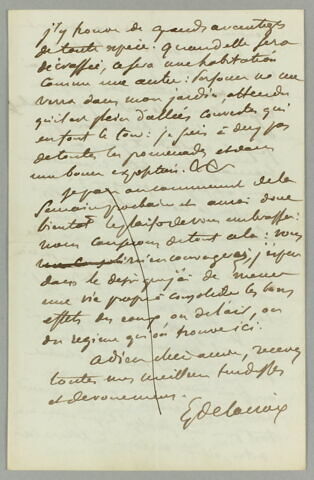 j'y trouve de grands avantages
de toute espèce : quand elle sera
décrassée, ce sera une habitation
comme une autre : personne ne me
verra dans mon jardin, attendu
qu'il est plein d'allées couvertes qui
en font le tour : je suis à deux pas
de toutes les promenades et dans
une bonne exposition. &&
je pars au commencement de la
semaine prochaine et aurai donc
bientôt le plaisir de vous embrasser :
nous causerons de tout cela : vous
m'encouragerez, j'espère
dans le désir que j'ai de mener
une vie propre à consolider les bons
effets des eaux ou de l'air, ou
du régime qu'on trouve ici.
Adieu cher ami, recevez
toutes mes meilleures tendresses
et dévouement.
EgDelacroix